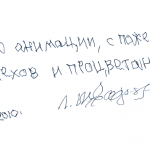 о анимации, с поже
ехов и процветан
ою.